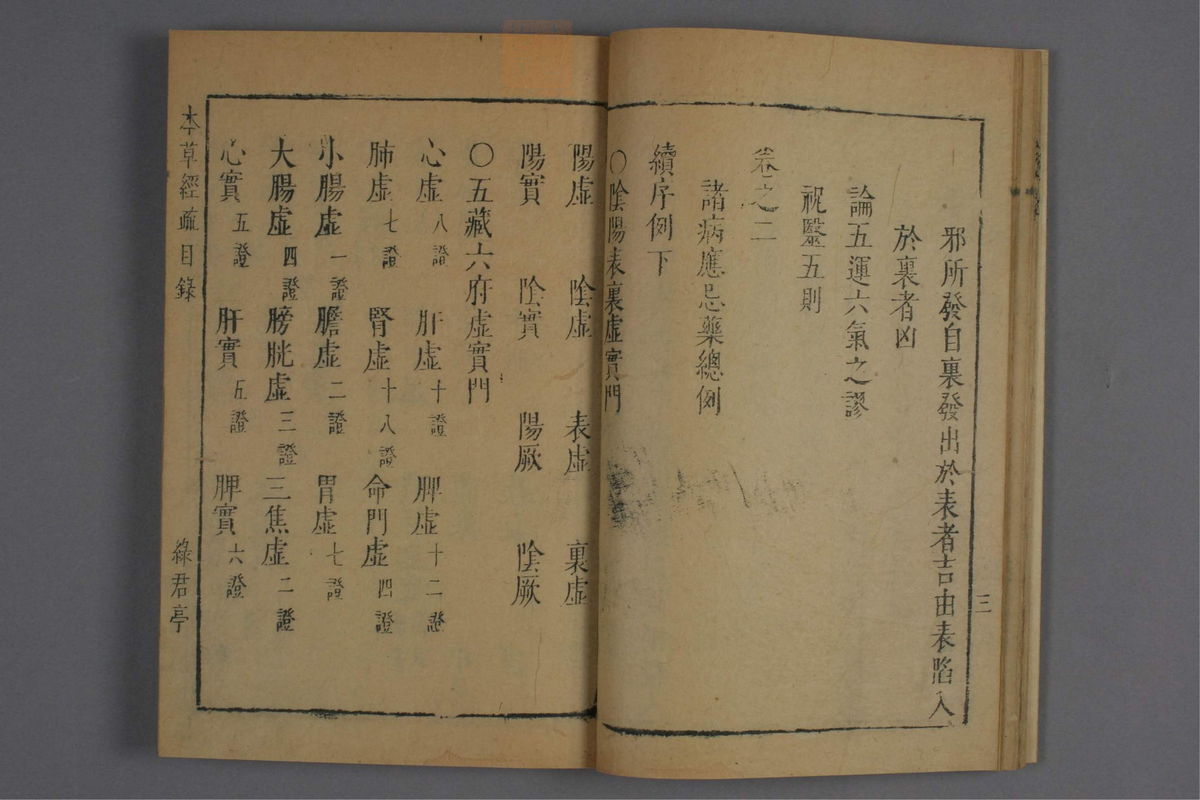 邪所發自裏發出於表者吉由表陷入
於裏者凶
論五運六氣之謬
祝醫五則
卷之二
諸病應忌藥總例
續序例下
〇陰陽表裏虛實門
三
陽虛 陰虛 表虛 裏虛
陽實 陰實 陽厥 陰厥
〇五藏六府虛實門
心虛八證 肝虛十證 脾虛十二證
肺虛七證 腎虛十八證 命門虛四證
小腸虛一證 膽虛二證 胃虛七證
大腸虛四證 膀胱虛三證 三焦虛二證
心實五證 肝實五證 脾實六證
本草經疏目錄
綠君亭